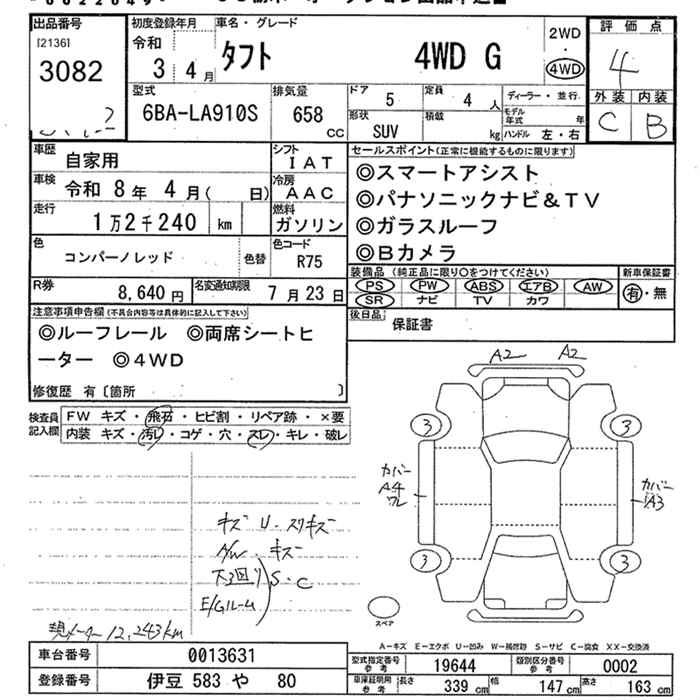 出品番号
[2136]
3082
初度登録年月
令和
3 4月
車名・グレード
タフト 4WD G
2WD
・
4WD
評価点
4
外装 内装
C B
型式
6BA-LA910S
排気量
658
cc
ドア
5
定員
4 人
形状
SUV
積載
kg
ディーラー・並行
モデル年式 年
ハンドル 左・右
車歴
自家用
シフト
IAT
車検
令和 8年 4月( 日)
冷房
AAC
走行
1万2千240 km
燃料
ガソリン
色
コンパーノレッド
色替
色コード
R75
R券
8,640円
名変通知期限
7月23日
セールスポイント(正常に機能するものに限ります)
◎スマートアシスト
◎パナソニックナビ&TV
◎ガラスルーフ
◎Bカメラ
装備品 (純正品に限り○をつけてください)
PS PW ABS エアB AW
SR ナビ TV カワ
新車保証書
有・無
後日品
保証書
注意事項申告欄(不具合内容等は具体的に記入して下さい)
◎ルーフレール ◎両席シートヒ
ーター ◎4WD
修復歴 有〔箇所 〕
検査員
記入欄
FW キズ・飛石・ヒビ割・リペア跡・×要
内装 キズ・汚レ・コゲ・穴・スレ・キレ・破レ
A2 A2
3 3
カバー
A4
ワレ
カバー
A3
3 3
キズ U・スリキズ
A/W・キズ
下回り
E/Gルーム
S・C
現メーター12,243km
スペア
A-キズ E-エクボ U-凹み W-補修跡 S-サビ C-腐食 XX-交換済
車台番号
0013631
登録番号
伊豆 583 や 80
型式指定番号
参考
19644
類別区分番号
参考
0002
車庫証明用
参考
長さ 339 cm 幅 147 cm 高さ 163 cm